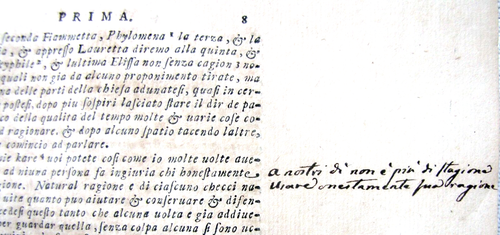 PRIMA. 8
seconda Fiammetta, Phylomena ' la terza, & la
, & appresso Lauretta diremo alla quinta, &
yphile², & lultima Elissa non senza cagion 3 no-
quali non gia da alcuno proponimento tirate, ma
na delle parti della chiesa adunatesi, quasi in cer-
postesi, dopo piu sospiri lasciato stare il dir de pa-
co della qualita del tempo molte & uarie cose co-
d ragionare. & dopo alcuno spatio tacendo laltre,
comincio ad parlare.
ie kare ⁴ uoi potete cosi come io molte uolte aue-
ad niuna persona fa ingiuria chi honestamente
gione. Natural ragione e di ciascuno checci na-
uita quanto puo aiutare & conseruare & difen-
cedesi questo tanto che alcuna uolta e gia addiue-
per guardar quella, senza colpa alcuna si sono uc-
a nostri dì non è più di stagione
usare onestamente sua ragione